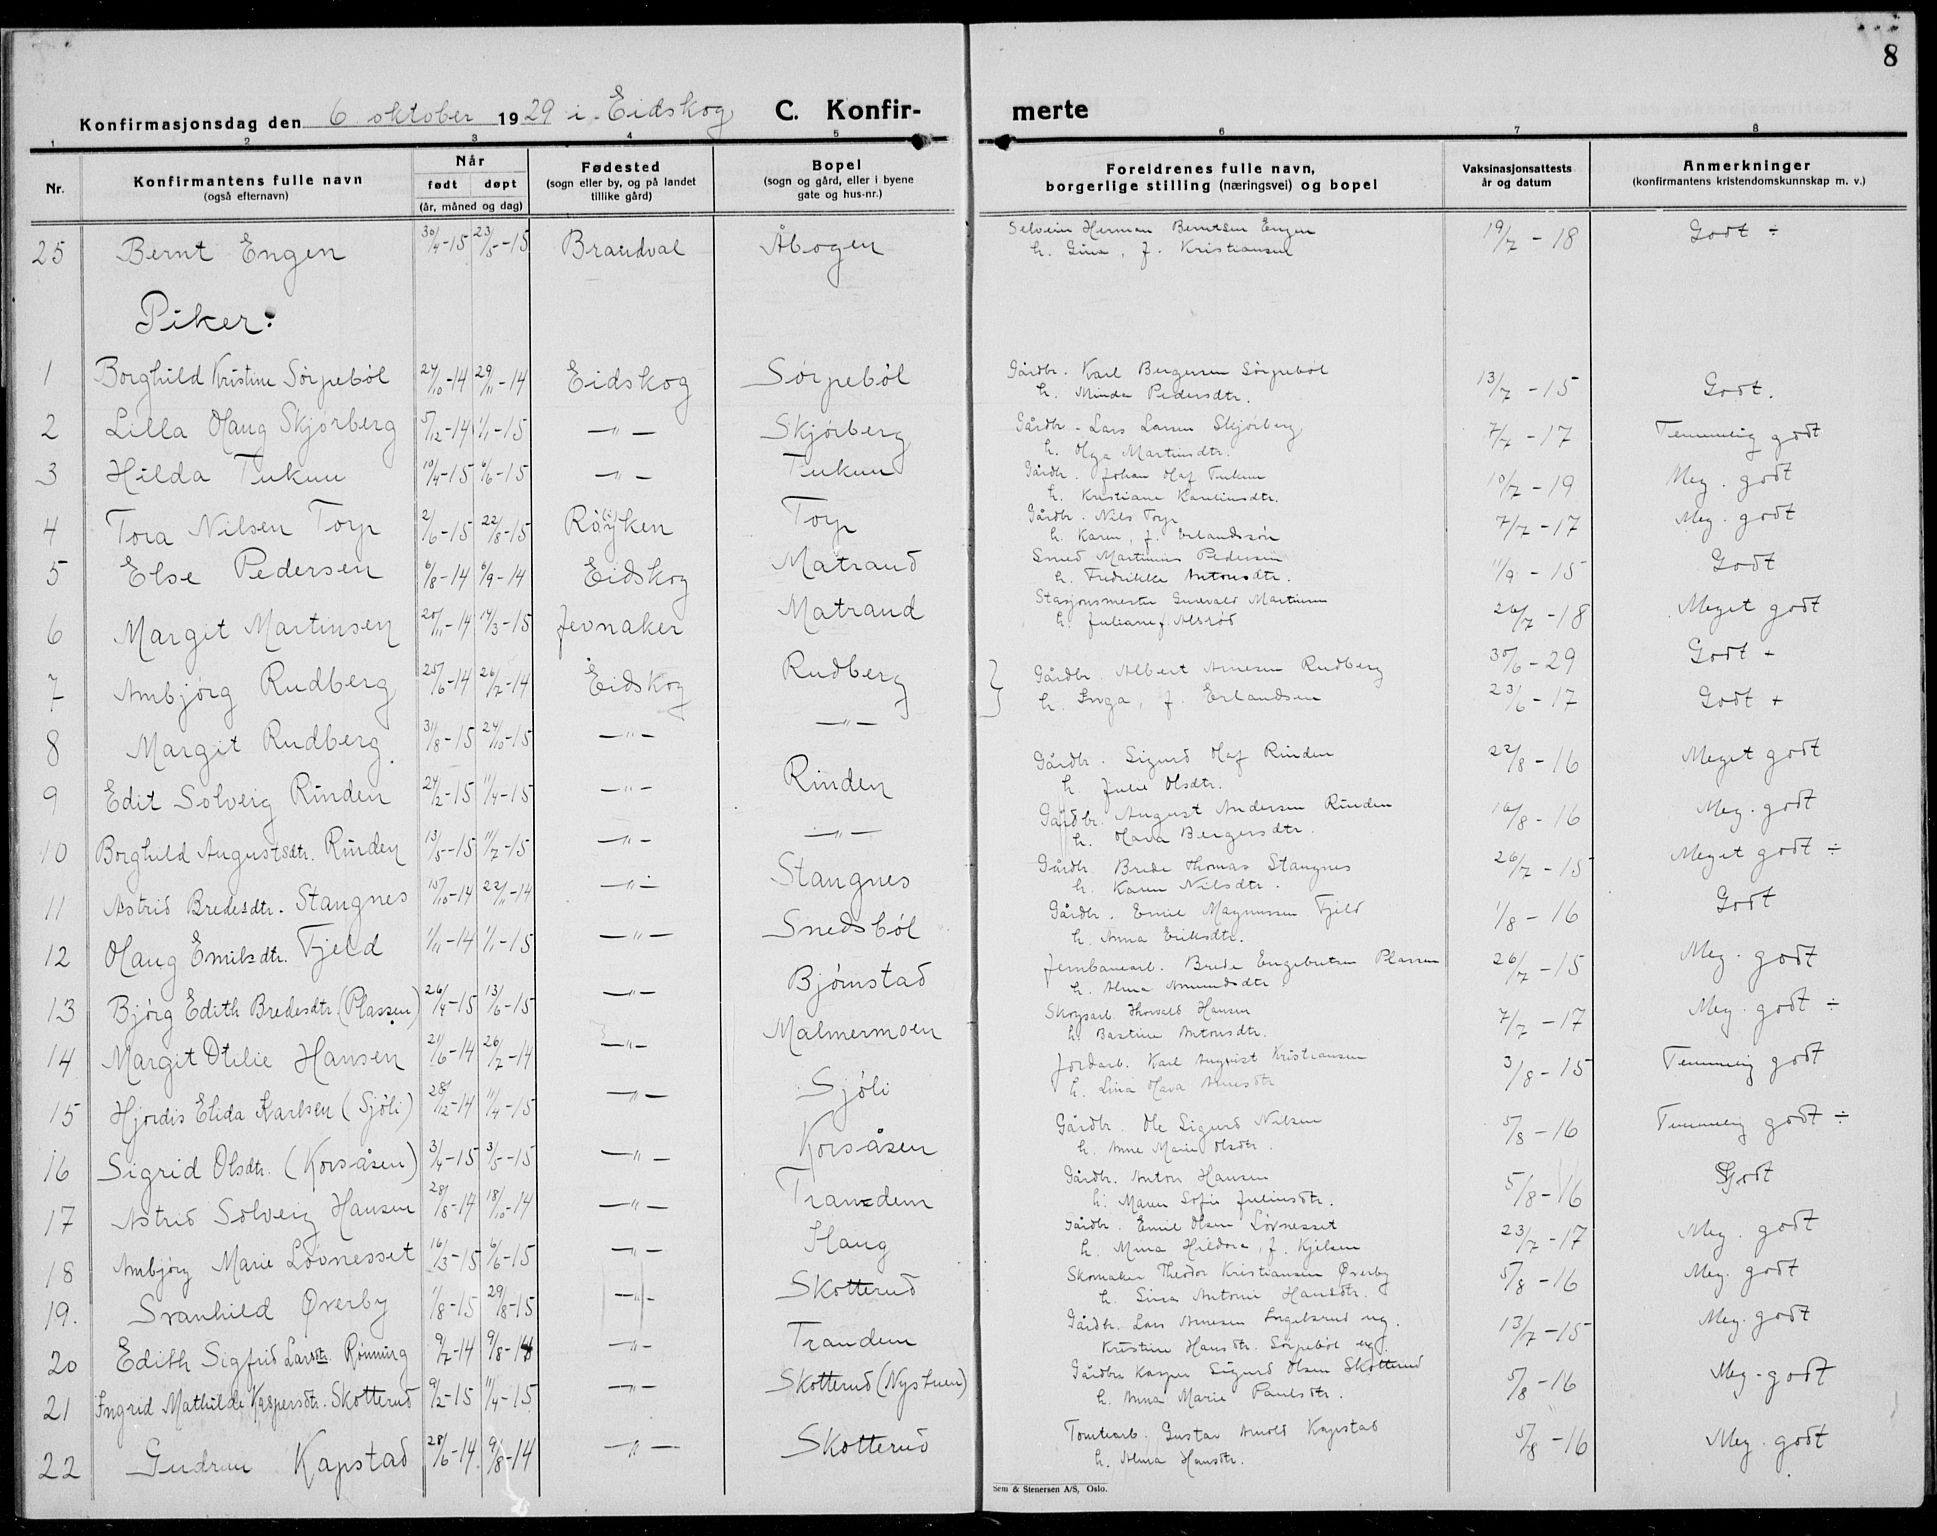 8
Konfirmasjonsdag den 6 oktober 1929 i Eidskog C. Konfir- merte
1 2 3 4 5 6 7 8
Nr. Konfirmantens fulle navn (også efternavn) Når født døpt (år, måned og dag) Fødested (sogn eller by, og på landet tillike gård) Bopel (sogn og gård, eller i byene gate og hus-nr.) Foreldrenes fulle navn, borgerlige stilling (næringsvei) og bopel Vaksinasjonsattests år og datum Anmerkninger (konfirmantens kristendomskunnskap m. v.)
25 Bernt Engen 30/4-15 23/5-15 Brandval Åbogen Herman Berntsen Engen 19/7-18 Godt ÷
h. Gina, f. Kristiansen
Piker:
1 Borghild Kristine Sørpebøl 24/10-14 29/11-14 Eidskog Sørpebøl Gårdbr. Karl Bergersen Sørpebøl 13/7-15 Godt.
h. Minda Pedersdtr.
2 Lilla Olaug Skjørberg 5/12-14 1/1-15 —"— Skjørberg Gårdbr. Lars Larsen Skjørberg 7/7-17 Temmelig godt
h. Olga Martinsdtr.
3 Hilda Tukun 10/4-15 6/6-15 —"— Tukun Gårdbr. Johan Olaf Tukun 10/7-19 Meg. godt
h. Kristiane Karelinsdtr.
4 Tora Nilsen Torp 2/6-15 22/8-15 Røyken Torp Gårdbr. Nils Torp 7/7-17 Meg. godt
h. Karen, f. Erlandssøn
5 Else Pedersen 6/8-14 6/9-14 Eidskog Matrand Smed Martinius Pedersen 11/9-15 Godt
h. Fredrikke Antonsdtr.
6 Margit Martinsen 20/11-14 14/3-15 Jevnaker Matrand Stasjonsmester Gudevald Martinsen 26/7-18 Meget godt
h. Juliane f. Alsrød
7 Ambjørg Rudberg 25/6-14 26/7-14 Eidskog Rudberg } Gårdbr. Albert Arnesen Rudberg 30/6-29 Godt -
8 Margit Rudberg 31/8-15 24/10-15 —"— —"— h. Inga, f. Erlandsen 23/6-17 Godt +
9 Edit Solveig Rinden 24/2-15 11/4-15 —"— Rinden Gårdbr. Sigurd Olaf Rinden 22/8-16 Meget godt
h. Julie Olsdtr.
10 Borghild Augustsdtr. Rinden 13/5-15 11/7-15 —"— —"— Gårdbr. August Andersen Rinden 16/8-16 Meg. godt
h. Olava Bergersdtr.
11 Astrid Bredesdtr. Stangnes 15/10-14 22/11-14 —"— Stangnes Gårdbr. Brede Thomas Stangnes 26/7-15 Meget godt ÷
h. Karen Nilsdtr.
12 Olaug Emilsdtr. Fjeld 1/11-14 1/1-15 —"— Snedsbøl Gårdbr. Emil Magnussen Fjeld 1/8-16 Godt
h. Anna Eriksdtr.
13 Bjørg Edith Bredesdtr. (Plassen) 26/4-15 13/6-15 —"— Bjørnstad Jernbanearb. Brede Engebretsen Plassen 26/7-15 Meg. godt
h. Alma Amundsdtr
14 Margit Otilie Hansen 21/6-14 26/7-14 —"— Malmermoen Skogsarb Thorvald Hansen 7/7-17 Meg. godt ÷
h. Bastine Antonsdtr.
15 Hjørdis Elida Karlsen (Sjøli) 28/12-14 11/4-15 —"— Sjøli Jordarb. Karl August Kristiansen 3/8-15 Temmelig godt
h. Lina Olava Arnesdtr
16 Sigrid Olsdtr. (Korsåsen) 3/4-15 3/5-15 —"— Korsåsen Gårdbr. Ole Sigurd Nilsen 5/8-16 Temmelig godt ÷
h. Anne Marie Olsdtr.
17 Astrid Solveig Hansen 28/8-14 18/10-14 —"— Trandem Gårdbr. Anton Hansen 5/8-16 Godt
h. Maren Sofie Juliusdtr.
18 Ambjørg Marie Løvnesset 16/3-15 6/6-15 —"— Haug Gårdbr. Emil Olsen Løvnesset 23/7-17 Meg. godt
h. Mina Hildora, f. Kjelsen
19. Svanhild Øverby 1/8-15 29/8-15 —"— Skotterud Skomaker Theodor Kristiansen Øverby 5/8-16 Meg. godt
h. Lina Antonie Hansdtr.
20 Edith Sigfrid Larsdtr. Rønning 9/7-14 9/8-14 —"— Trandem Gårdbr. Lars Arnesen Ingelsrud ug. 13/7-15 Meg. godt
Kristine Hansdtr. Sørpebøl ug.
21 Ingrid Mathilde Kaspersdtr. Skotterud 9/2-15 11/4-15 —"— Skotterud (Nystuen) Gårdbr Kasper Sigurd Olsen Skotterud 5/8-16 Meg. godt
h. Anna Marie Paulsdtr.
22 Gudrun Kapstad 28/6-14 9/8-14 —"— Skotterud Tomtearb. Gustav Arnold Kapstad 5/8-16 Meg. godt
h. Alma Hansdtr.
Sem & Stenersen A/S, Oslo.